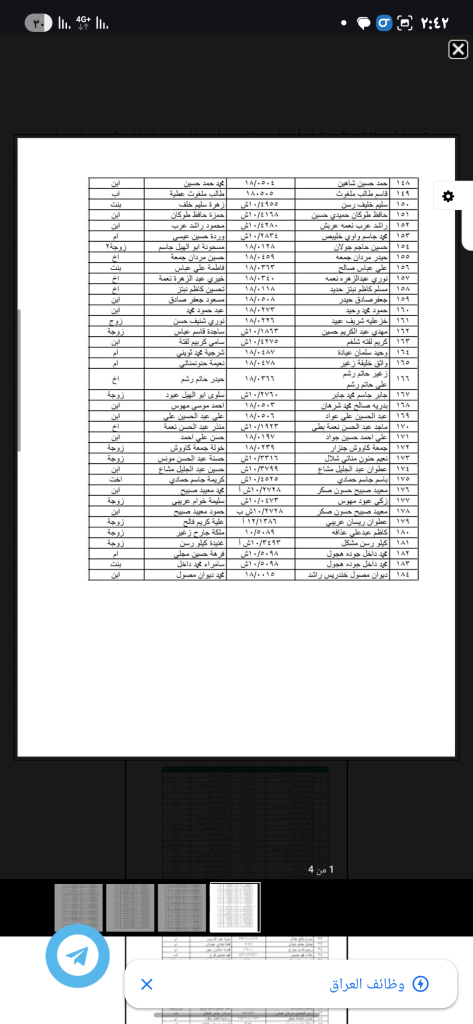 ٢:٤٢
4G+
٣٠
١٤٨ حمد حسين شاهين ١٨/٠٥٠٤ محمد حمد حسين ابن
١٤٩ قاسم طالب ملغوث ١٨٠٥٠٥ طالب ملغوث عطية اب
١٥٠ سليم خليف رسن ١٠/٤٩٥٥ش زهرة سليم خلف بنت
١٥١ حافظ طوكان حميدي حسين ١٠/٤١٦٨ش حمزة حافظ طوكان ابن
١٥٢ راشد عرب نعمه عريش ١٠/٤٢٨٠ش محمود راشد عرب ابن
١٥٣ محمد جاسم واوي خليبص ١٠/٢٨٣٤ش وردة حسين عيسى ام
١٥٤ حسين حاجم جولان ١٨/٠١٢٨ مسحونة ابو الهيل جاسم زوجة٢
١٥٥ حيدر مردان جمعه ١٨/٠٤٥٩ حسين مردان جمعة اخ
١٥٦ علي عباس صالح ١٨/٠٣٦٣ فاطمة علي عباس بنت
١٥٧ نوري عبدالزهره نعمه ١٨/٠٣٤٠ خيري عبد الزهرة نعمة اخ
١٥٨ مسلم كاظم نيتز حديد ١٨/٠١١٨ تحسين كاظم نيتز اخ
١٥٩ جعفرصادق حيدر ١٨/٠٥٠٨ مسعود جعفر صادق ابن
١٦٠ حمود محمد وحيد ١٨/٠٢٧٣ عبد حمود محمد ابن
١٦١ خزعليه شريف عبيد ١٨/٠٢٢٦ نوري شنيف حسن زوج
١٦٢ مهدي عبد الكريم حسين ١٠/١٨٦٣ش ساجدة قاسم عباس زوجة
١٦٣ كريم لفته شلغم ١٠/٤٢٧٥ش سامي كرييم لفتة ابن
١٦٤ وحيد سلمان عيادة ١٨/٠٤٨٧ شرجية محمد ثويني ام
١٦٥ واثق خليفة زغير ١٨/٠٤٧٨ نعيمة حنونمناتي ام
١٦٦ زغير حاتم رشم علي حاتم رشم ١٨/٠٣٦٦ حيدر حاتم رشم اخ
١٦٧ جابر جاسم محمد جابر ١٠/٢٧٦٠ش سلوى ابو الهيل عبود زوجة
١٦٨ بدريه صالح محمد شرهان ١٨/٠٥٠٣ احمد موسى مهوس ابن
١٦٩ عبد الحسين علي عواد ١٨/٠٥٠٦ علي عبد الحسين علي ابن
١٧٠ ماجد عبد الحسن نعمة بطي ١٠/١٩٢٣ش منذر عبد الحسن نعمة اخ
١٧١ علي احمد حسين جواد ١٨/٠١٩٧ حسن علي احمد ابن
١٧٢ جمعة كاووش جنزار ١٨/٠٢٣٩ خولة جمعة كاووش زوجة
١٧٣ نعيم حنون مناتي شلال ١٠/٣٣١٦ش حسنة عبد الحسن مونس زوجة
١٧٤ عطوان عبد الجليل مشاع ١٠/٣٧٩٩ش حسين عبد الجليل مشاع ابن
١٧٥ باسم جاسم حمادي ١٠/٤٥٢٥ش كريمة جاسم حمادي اخت
١٧٦ معبيد صبيح حسون صكر ١٠/٢٧٢٨ش أ محمد معبيد صبيح ابن
١٧٧ زكي عبود مهوس ١٠/٠٤٧٣ش سليمة خوام عريبي زوجة
١٧٨ معبيد صبيح حسون صكر ١٠/٢٧٢٨ش ب حمود معبيد صبيح ابن
١٧٩ عطوان ريسان عريبي ١٢/١٣٨٦ أ علية كريم فالح زوجة
١٨٠ كاظم عبدعلي عذافه ١٠/٥٠٨٩ ملكة جارح زغير زوجة
١٨١ كيلو رسن مشكل ١٠/٣٤٩٣ش أ عنيدة كيلو رسن زوجة
١٨٢ محمد داخل جوده هجول ١٠/٥٠٩٨ش فرهة حسين مجلي ام
١٨٣ محمد داخل جوده هجول ١٠/٥٠٩٨ش سامراء محمد داخل بنت
١٨٤ ديوان مصول خندريس راشد ١٨/٠٠١٥ محمد ديوان مصول ابن
1 من 4
وظائف العراق